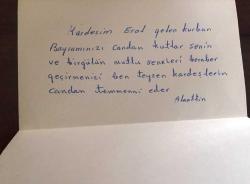 Kardeşim Erol gelen kurban
Bayramınızı candan kutlar senin
ve birgülün mutlu seneleri beraber
geçirmenizi ben teyzen kardeşlerin
candan temmenni eder
Alaattin